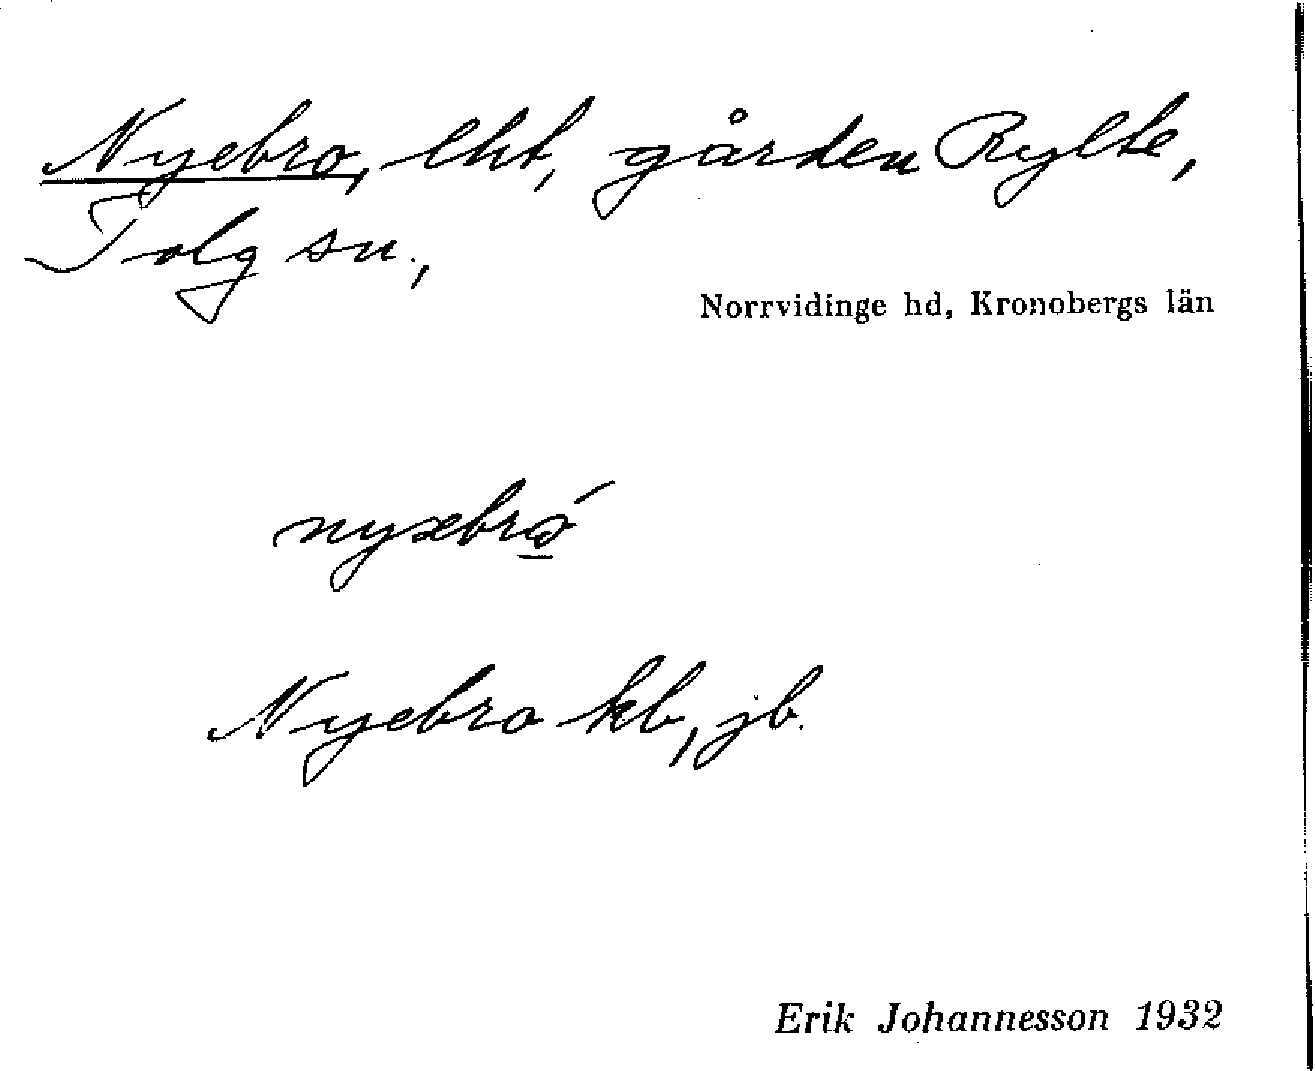 Nyebro, lht, gården Rylte,
Tolg sn.,
Norrvidinge hd, Kronobergs län
Nyebro kb, jb.
Erik Johannesson 1932